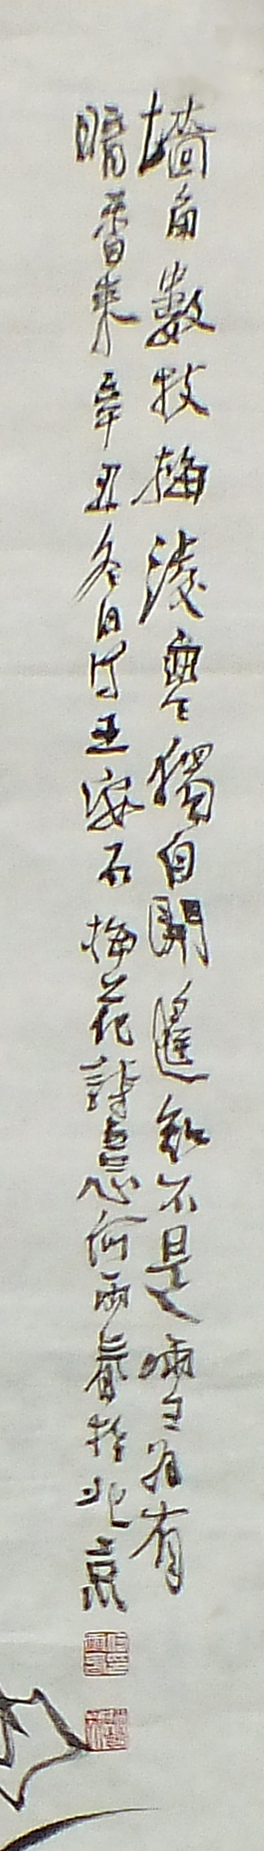 墙角数枝梅凌寒獨自開遥知不是雪為有
暗香來辛丑冬日寫王安石梅花詩意何雨春於北京